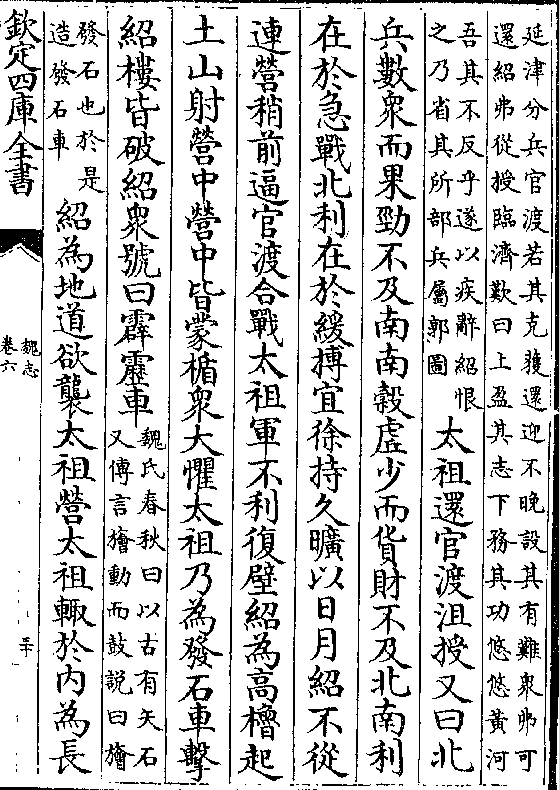 延津分兵官渡若其克獲還迎不晚設其有難衆弗可
還紹弗從授臨濟歎曰上盈其志下務其功悠悠黃河
吾其不反乎遂以疾辭紹恨
之乃省其所部兵屬郭圖
太祖還官渡沮授又曰北
兵數衆而果勁不及南南穀虚少而貨財不及北南利
在於急戰北利在於緩搏宜徐持久曠以日月紹不從
連營稍前逼官渡合戰太祖軍不利復壁紹為高櫓起
土山射營中營中皆蒙楯衆大懼太祖乃為發石車擊
紹樓皆破紹衆號曰霹靂車
魏氏春秋曰以古有矢石
又傳言旝動而鼓説曰旝
發石也於是
造發石車
紹為地道欲襲太祖營太祖輒於内為長
欽定四庫全書
魏志
卷六
三十